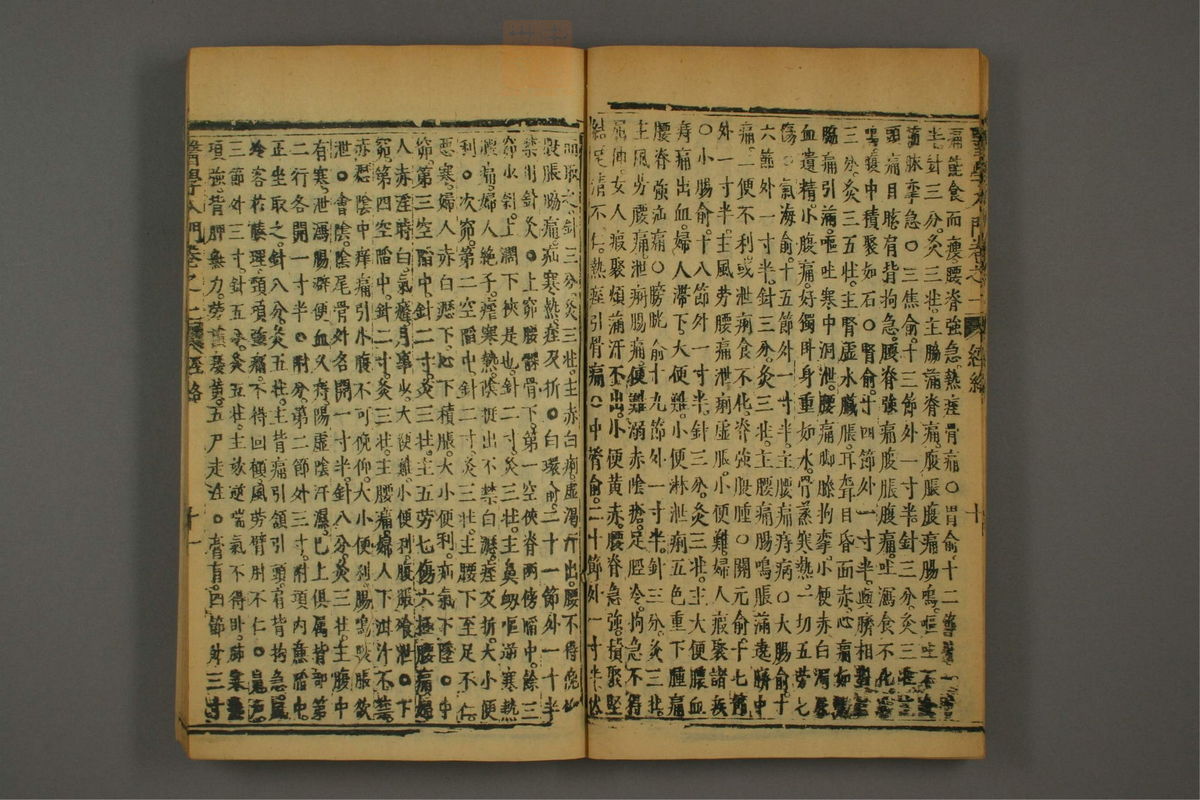 醫學入門卷之一 經絡 十
痛能食而瘦腰脊強急熱痙骨痛○胃俞十二
半針三分灸三壯主腸痛脊痛腹脹腹痛腸鳴嘔吐不
筋脉攣急○三焦俞十三節外一寸半針三分灸三壯
頭痛目眩肩背拘急腰脊強痛腹脹腹痛吐瀉食不化
鳴腹中積聚如石○腎俞十四節外一寸半與臍相
三分灸三五壯主腎虛水臟脹耳聾目昏面赤心痛如
脇痛引滿嘔吐寒中洞泄腰痛脚膝拘攣小便赤白濁
血遺精小腹痛好獨臥身重如水骨蒸寒熱一切五勞七
傷○氣海俞十五節外一寸半主腰痛痔病○大腸俞十
六節外一寸半針三分灸三壯主腰痛腸鳴脹滿遶臍中
痛二便不利或泄痢食不化脊強股腫○關元俞十七節
外一寸半主風勞腰痛泄痢虛脹小便難婦人瘕聚諸疾
○小腸俞十八節外一寸半針三分灸三壯主大便膿血
痔痛出血婦人滯下大便難小便淋泄痢五色重下腫痛
腰脊強疝痛○膀胱俞十九節外一寸半針三分灸三壯
主風勞腰痛泄痢腸痛便難溺赤陰瘡足脛冷拘急不得
屈伸女人瘕聚煩滿汗不出小便黃赤腰脊急強積聚堅
結足清不仁熱痙引骨痛○中膂俞二十節外一寸半伏
而取之針三分灸三壯主赤白痢虛渴汗出腰不得俛仰
腹脹脇痛疝寒熱痙反折○白環俞二十一節外一寸半
禁用針灸○上窌腰髁骨下第一空俠脊兩傍陷中餘三
窌水斜上濶下狹是也針二寸灸三壯主鼻衄嘔逆寒熱
腰痛婦人絕子瘧寒熱陰挺出不禁白瀝痙反折大小便
利○次窌第二空陷中針二寸灸三壯主腰下至足不仁
惡寒婦人赤白瀝下心下積脹大小便利疝氣下墜○中
窌第三空陷中針二寸灸三壯主五勞七傷六極腰痛婦
人赤淫時白氣癃月事少大便難小便利腹脹飱泄○下
窌第四空陷中針二寸灸三壯主腰痛婦人下泔汁不禁
赤瀝陰中痒痛引小腹不可俛仰大小便利腸鳴腹脹欲
泄○會陰陰尾骨外各開一寸半針八分灸三壯主腹中
有寒泄瀉腸澼便血久痔陽虛陰汗濕已上俱屬背部第
二行各開一寸半○附分第二節外三寸附項內㢘陷中
正坐取之針八分灸五壯主背痛引頷引頭肩背拘急風
冷客於腠理頸項強痛不得回顧風勞臂肘不仁○
三節外三寸針五分灸五壯主欬逆喘氣不得臥肺
項強背胛無力勞損痿黃五尸走注○膏肓四節外三寸
醫學入門卷之一 經絡 十一